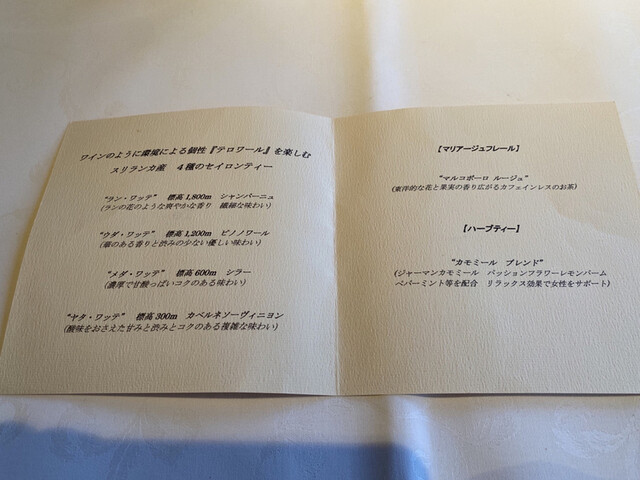 ワインのように環境による個性『テロワール』を楽しむ
スリランカ産　４種のセイロンティー
“ラン・ワッテ”　標高1,800m　シャンパーニュ
(ランの花のような爽やかな香り　繊細な味わい)
“ウダ・ワッテ”　標高1,200m　ピノノワール
(華のある香りと渋みの少ない優しい味わい)
“メダ・ワッテ”　標高600m　シラー
(濃厚で甘酸っぱいコクのある味わい)
“ヤタ・ワッテ”　標高300m　カベルネソーヴィニヨン
(酸味をおさえた甘みと渋みとコクのある複雑な味わい)
【マリアージュフレール】
“マルコポーロ ルージュ”
(東洋的な花と果実の香り広がるカフェインレスのお茶)
【ハーブティー】
“カモミール　ブレンド”
(ジャーマンカモミール　パッションフラワーレモンバーム
ペパーミント等を配合　リラックス効果で女性をサポート)